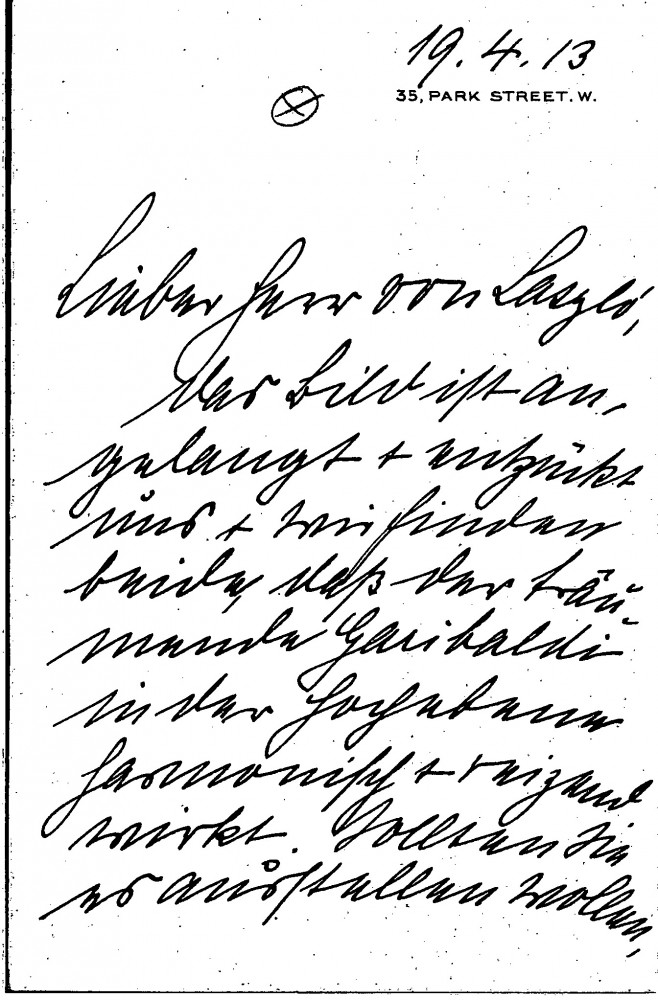 19. 4. 13
35, PARK STREET. W.
Lieber Herr von László,
das Bild ist an-
gelangt + entzückt
uns + wir finden
beide, daß der träu-
mende Garibaldi
in der Hochebene
harmonisch + reizend
wirkt. Sollten Sie
es ausstellen wollen,